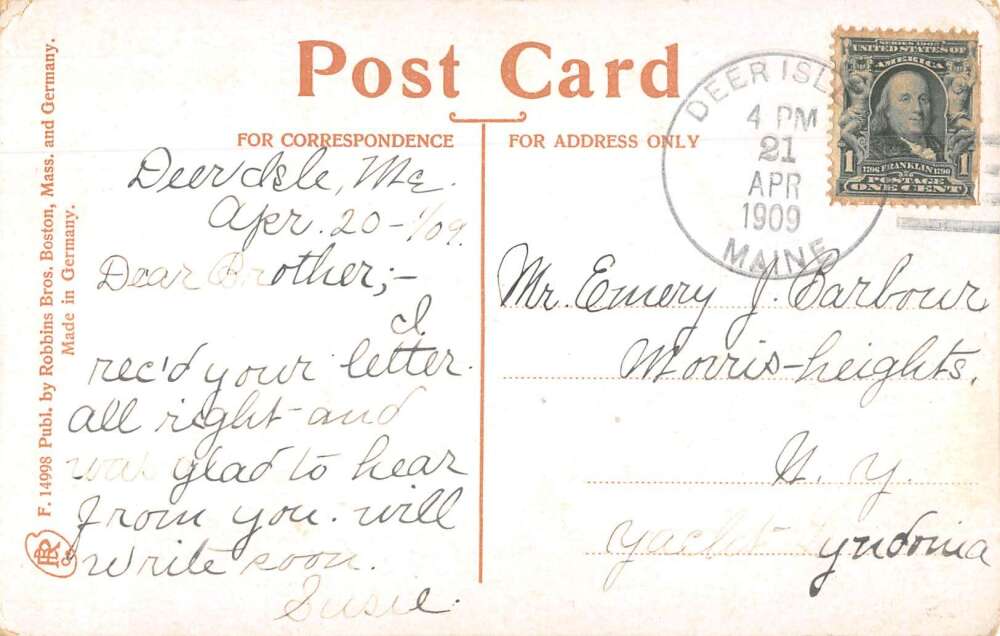 Post Card
FOR CORRESPONDENCE
FOR ADDRESS ONLY
F. 14998 Publ. by Robbins Bros. Boston, Mass. and Germany.
Made in Germany.
Deer Isle, Me.
Apr. 20-1/09.
Dear Brother;-
I
rec'd your letter
all right and
was glad to hear
from you. will
write soon.
Susie.
DEER ISL
4 PM
21
APR
1909
MAINE
SERIES 1902
UNITED STATES OF
AMERICA
1706 FRANKLIN 1790
POSTAGE
1 ONE CENT 1
Mr. Emery J. Barbour
Morris-heights.
N. Y.
Yacht yndonia